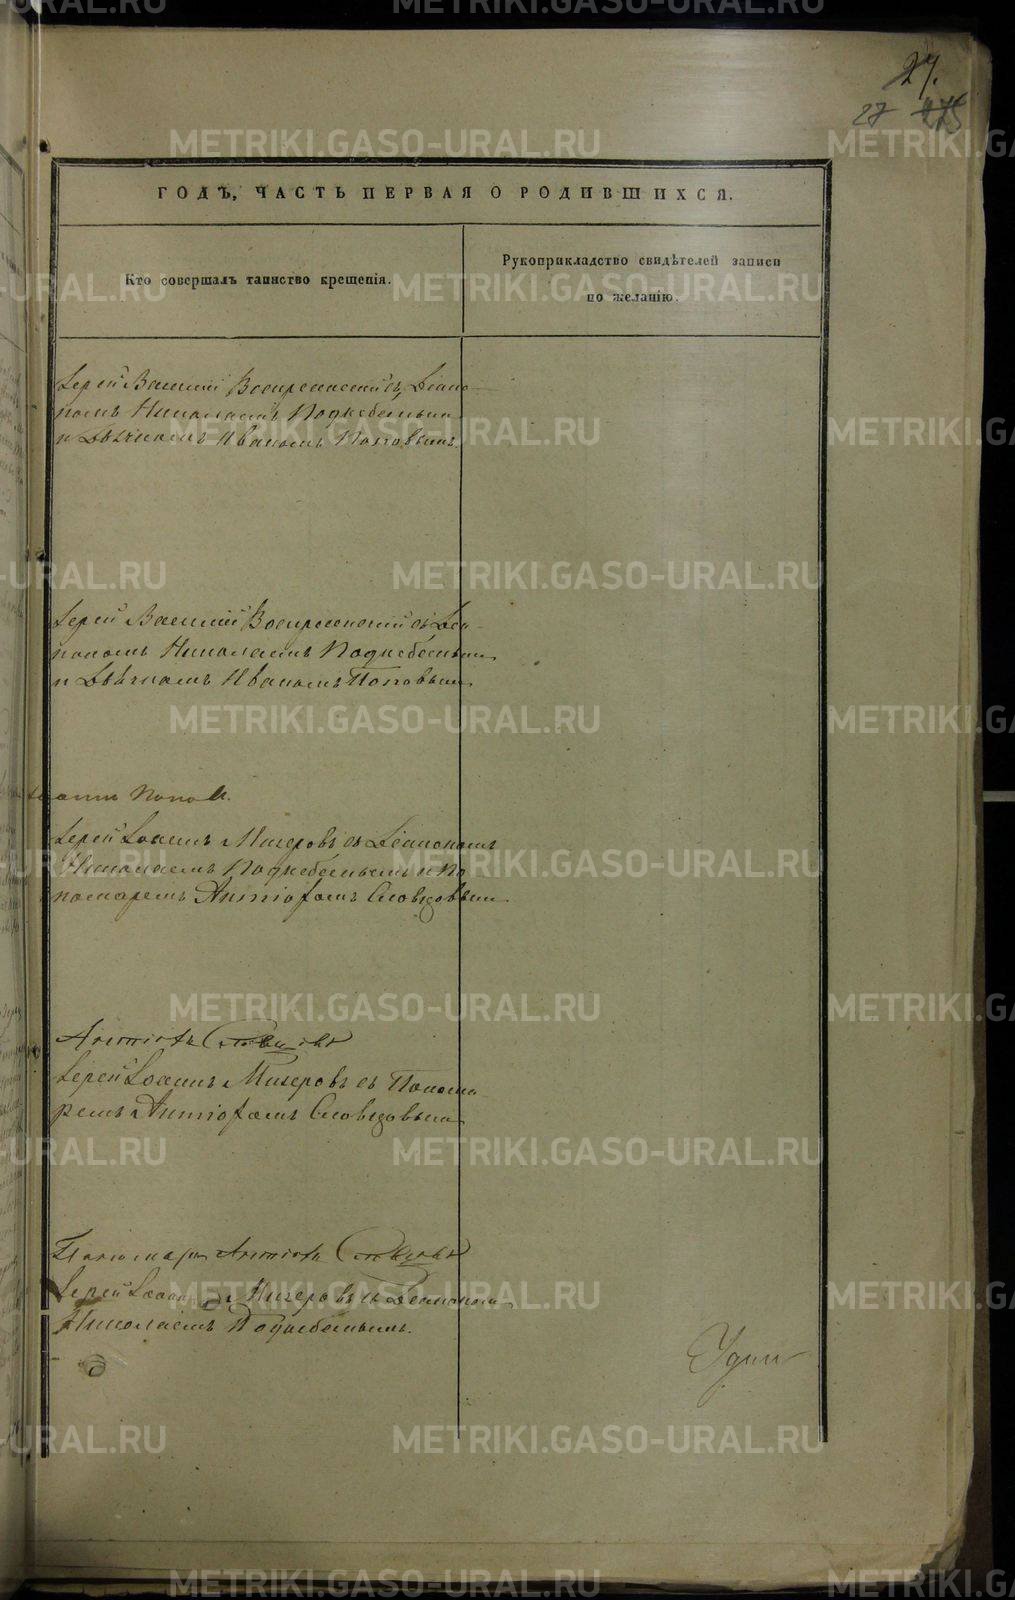 27.
27 275
ГОДЪ, ЧАСТЬ ПЕРВАЯ О РОДИВШИХСЯ.
Кто совершалъ таинство крещенія.
Рукоприкладство свидѣтелей записи
по желанію.
Іерей Василій Воскресенскій съ Діако-
номъ Николаемъ Поднебеснымъ
и Дьячкомъ Иваномъ Поповымъ.
Іерей Василій Воскресенскій съ Діа-
кономъ Николаемъ Поднебеснымъ
и Дьячкомъ Иваномъ Поповымъ.
Іоаннъ Поповъ.
Іерей Іоаннъ Мизеровъ съ Діакономъ
Николаемъ Поднебеснымъ и По-
номаремъ Антіофомъ Словцовымъ.
Антіохъ Словцовъ
Іерей Іоаннъ Мизеровъ съ Понома-
ремъ Антіофомъ Словцовымъ
Пономарь Антіохъ Словцовъ
Іерей Іоаннъ Мизеровъ съ Діакономъ
Николаемъ Поднебеснымъ.
METRIKI.GASO-URAL.RU